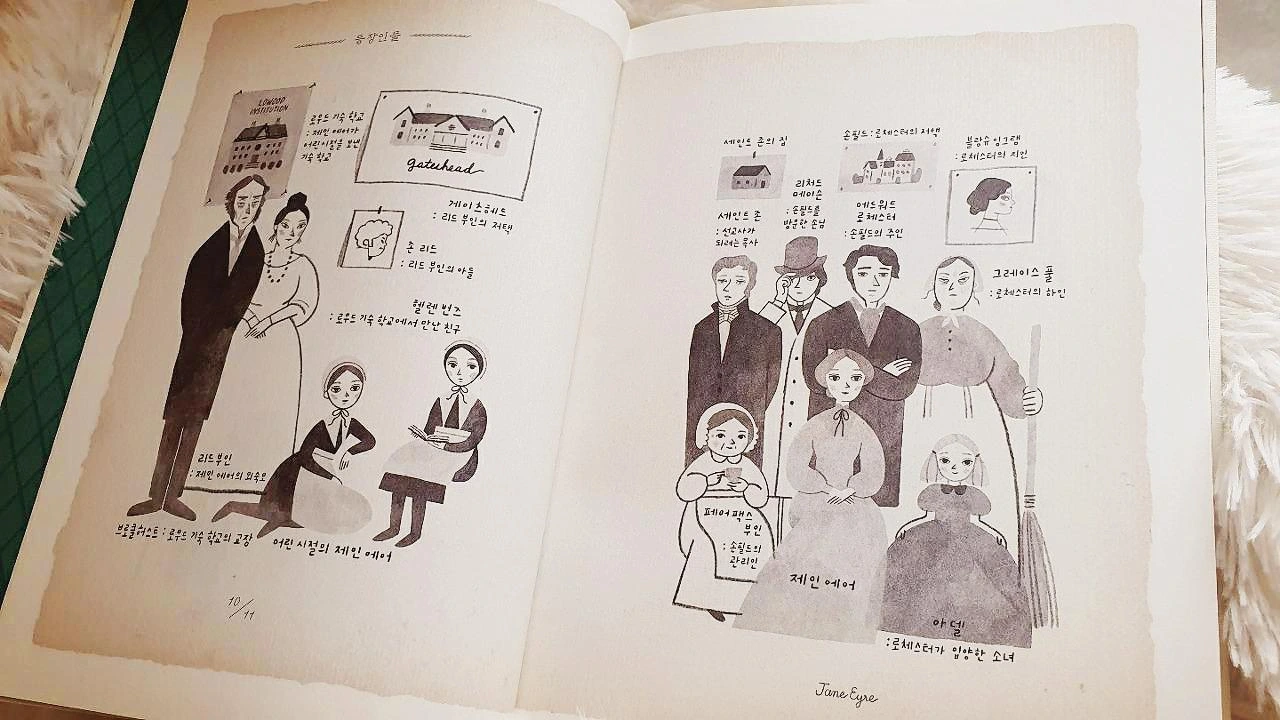 등장인물
LOWOOD
INSTITUTION
로우드 기숙 학교
: 제인 에어가
어린 시절을 보낸
기숙 학교
gateshead
게이츠헤드
: 리드 부인의 저택
존 리드
: 리드 부인의 아들
헬렌 번즈
: 로우드 기숙 학교에서 만난 친구
리드 부인
: 제인 에어의 외숙모
브로클허스트 : 로우드 기숙 학교의 교장
어린 시절의 제인 에어
10/11
세인트 존의 집
손필드 : 로체스터의 저택
블랑슈 잉그램
: 로체스터의 지인
세인트 존
: 선교사가
되려는 목사
리처드
메이슨
: 손필드를
방문한 손님
에드워드
로체스터
: 손필드의 주인
그레이스 풀
: 로체스터의 하인
페어팩스
부인
: 손필드의
관리인
제인 에어
아델
: 로체스터가 입양한 소녀
Jane Eyre